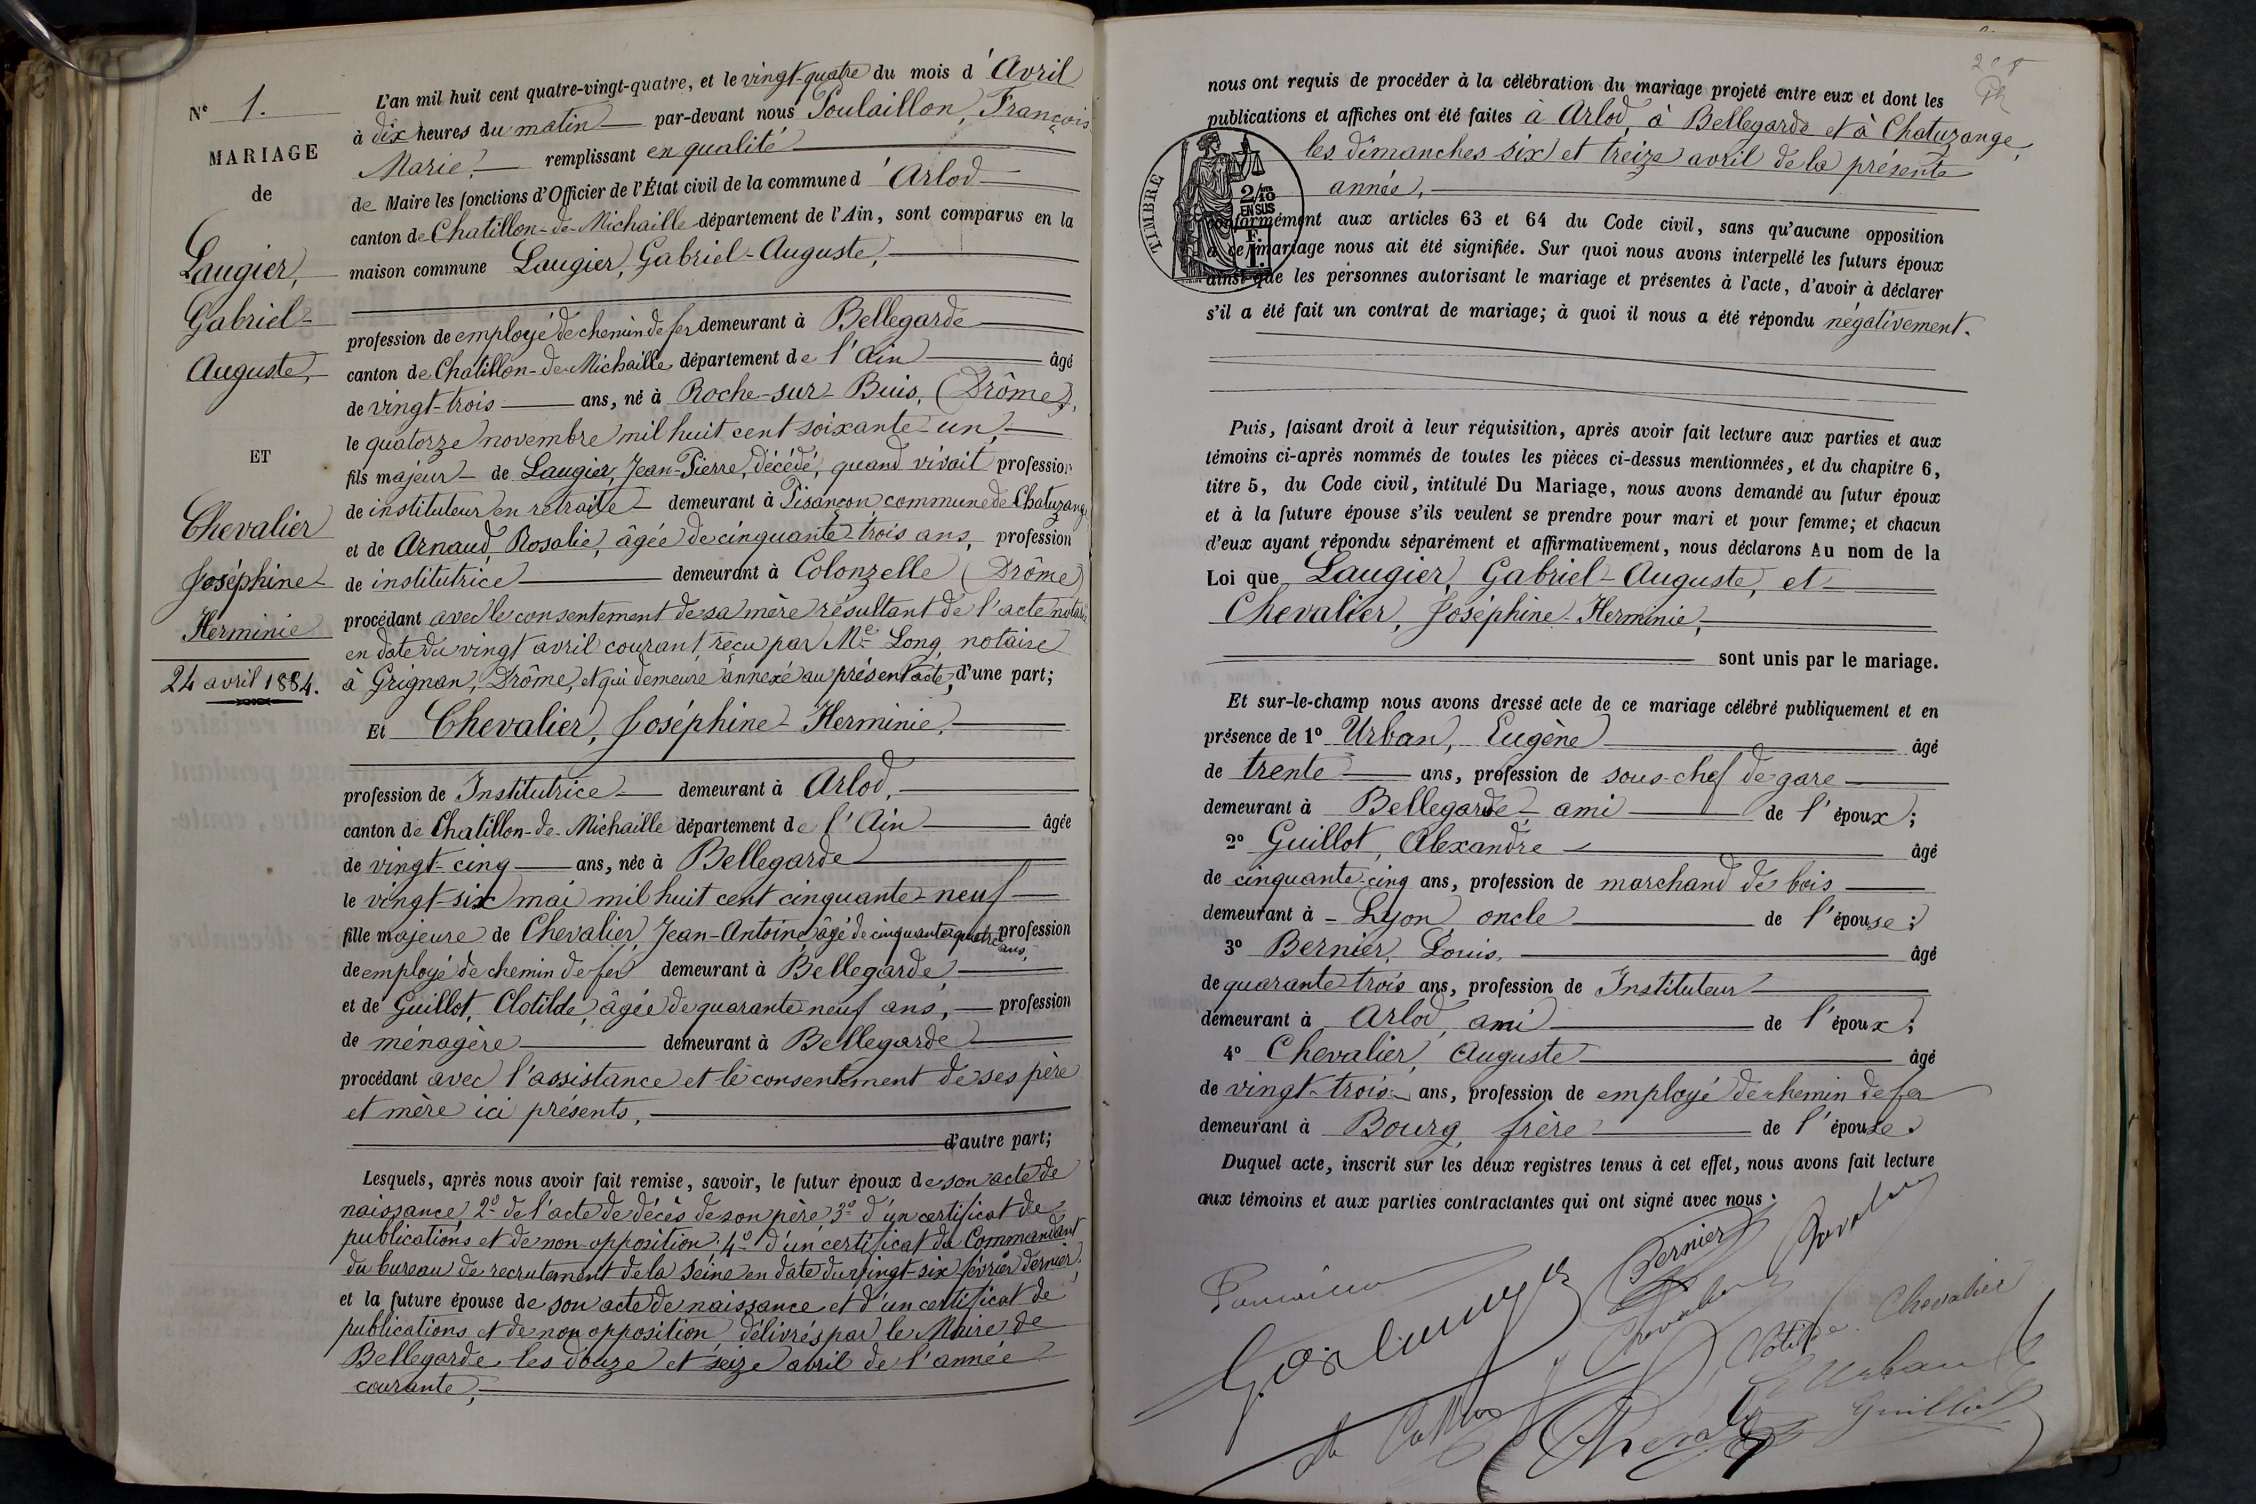 N° 1.
MARIAGE
de
Laugier,
Gabriel-
Auguste,
ET
Chevalier
Joséphine-
Herminie
24 avril 1884.
L'an mil huit cent quatre-vingt-quatre, et le vingt-quatre du mois d'Avril
à dix heures du matin par-devant nous Poulaillon, François
Marie, remplissant en qualité
de Maire les fonctions d'Officier de l'État civil de la commune d'Arlod
canton de Chatillon-de-Michaille département de l'Ain, sont comparus en la
maison commune Laugier, Gabriel-Auguste,
profession de employé de chemin de fer demeurant à Bellegarde
canton de Chatillon-de-Michaille département de l'Ain âgé
de vingt-trois ans, né à Roche-sur-Buis, (Drôme),
le quatorze novembre mil huit cent soixante-un,
fils majeur de Laugier, Jean-Pierre, décédé, quand vivait profession
de instituteur en retraite demeurant à Pisançon commune de Chatuzange
et de Arnaud, Rosalie, âgée de cinquante-trois ans, profession
de institutrice demeurant à Colonzelle (Drôme)
procédant avec le consentement de sa mère résultant de l'acte notarié
en date du vingt avril courant reçu par Me Long, notaire
à Grignan, Drôme, et qui demeure annexé au présent acte, d'une part;
Et Chevalier, Joséphine-Herminie,
profession de Institutrice demeurant à Arlod,
canton de Chatillon-de-Michaille département de l'Ain âgée
de vingt-cinq ans, née à Bellegarde
le vingt-six mai mil huit cent cinquante-neuf
fille majeure de Chevalier, Jean-Antoine âgé de cinquante quatre ans, profession
de employé de chemin de fer demeurant à Bellegarde,
et de Guillot, Clotilde, âgée de quarante neuf ans, profession
de ménagère demeurant à Bellegarde
procédant avec l'assistance et le consentement de ses père
et mère ici présents,
d'autre part;
Lesquels, après nous avoir fait remise, savoir, le futur époux de son acte de
naissance, 2° de l'acte de décès de son père, 3° d'un certificat de
publications et de non-opposition, 4° d'un certificat du Commandant
du bureau de recrutement de la Seine en date du vingt-six février dernier,
et la future épouse de son acte de naissance et d'un certificat de
publications et de non opposition délivrés par le Maire de
Bellegarde les douze et seize avril de l'année
courante,
208
nous ont requis de procéder à la célébration du mariage projeté entre eux et dont les
publications et affiches ont été faites à Arlod, à Bellegarde et à Chatuzange,
les dimanches six et treize avril de la présente
année,
TIMBRE
2/10
EN SUS
1 F.
conformément aux articles 63 et 64 du Code civil, sans qu'aucune opposition
à ce mariage nous ait été signifiée. Sur quoi nous avons interpellé les futurs époux
ainsi que les personnes autorisant le mariage et présentes à l'acte, d'avoir à déclarer
s'il a été fait un contrat de mariage; à quoi il nous a été répondu négativement.
Puis, faisant droit à leur réquisition, après avoir fait lecture aux parties et aux
témoins ci-après nommés de toutes les pièces ci-dessus mentionnées, et du chapitre 6,
titre 5, du Code civil, intitulé Du Mariage, nous avons demandé au futur époux
et à la future épouse s'ils veulent se prendre pour mari et pour femme; et chacun
d'eux ayant répondu séparément et affirmativement, nous déclarons Au nom de la
Loi que Laugier, Gabriel-Auguste, et
Chevalier, Joséphine-Herminie,
sont unis par le mariage.
Et sur-le-champ nous avons dressé acte de ce mariage célébré publiquement et en
présence de 1° Urban, Eugène âgé
de trente ans, profession de sous-chef de gare
demeurant à Bellegarde, ami de l'époux;
2° Guillot, Alexandre âgé
de cinquante-cinq ans, profession de marchand de bois
demeurant à Lyon, oncle de l'épouse;
3° Bernier, Louis, âgé
de quarante trois ans, profession de Instituteur
demeurant à Arlod, ami de l'époux;
4° Chevalier, Auguste âgé
de vingt-trois ans, profession de employé de chemin de fer
demeurant à Bourg, frère de l'épouse.
Duquel acte, inscrit sur les deux registres tenus à cet effet, nous avons fait lecture
aux témoins et aux parties contractantes qui ont signé avec nous.
Bernier
Chevalier
Clotilde Chevalier
E Urban
Guillot